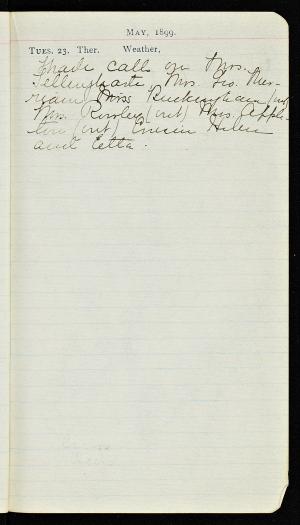 MAY, 1899.
TUES. 23. Ther. Weather,
I made calls on Mrs.
Tellinghaste, Mrs. Geo. Mer-
riam, Miss Buckingham (out)
Mrs. Rowley (out) Mrs. Apple-
ton (out) Cousin Helen
and Etta.